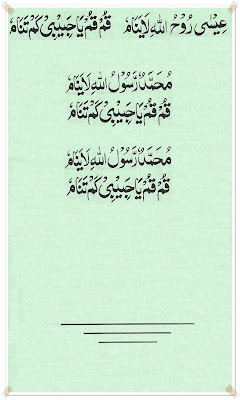 عِيْسٰى رُوْحُ اللهِ لَايَنَامْ    قُمْ قُمْ يَاحَبِيْبِىْ كَمْ تَنَامْ
مُحَمَّدٌ رَّسُوْلُ اللهِ لَايَنَامْ
قُمْ قُمْ يَا حَبِيْبِىْ كَمْ تَنَامْ
مُحَمَّدٌ رَّسُوْلُ اللهِ لَايَنَامْ
قُمْ قُمْ يَا حَبِيْبِىْ كَمْ تَنَامْ